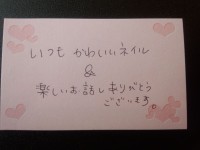 いつも かわいいネイル
&
楽しいお話しありがとう
ございます。